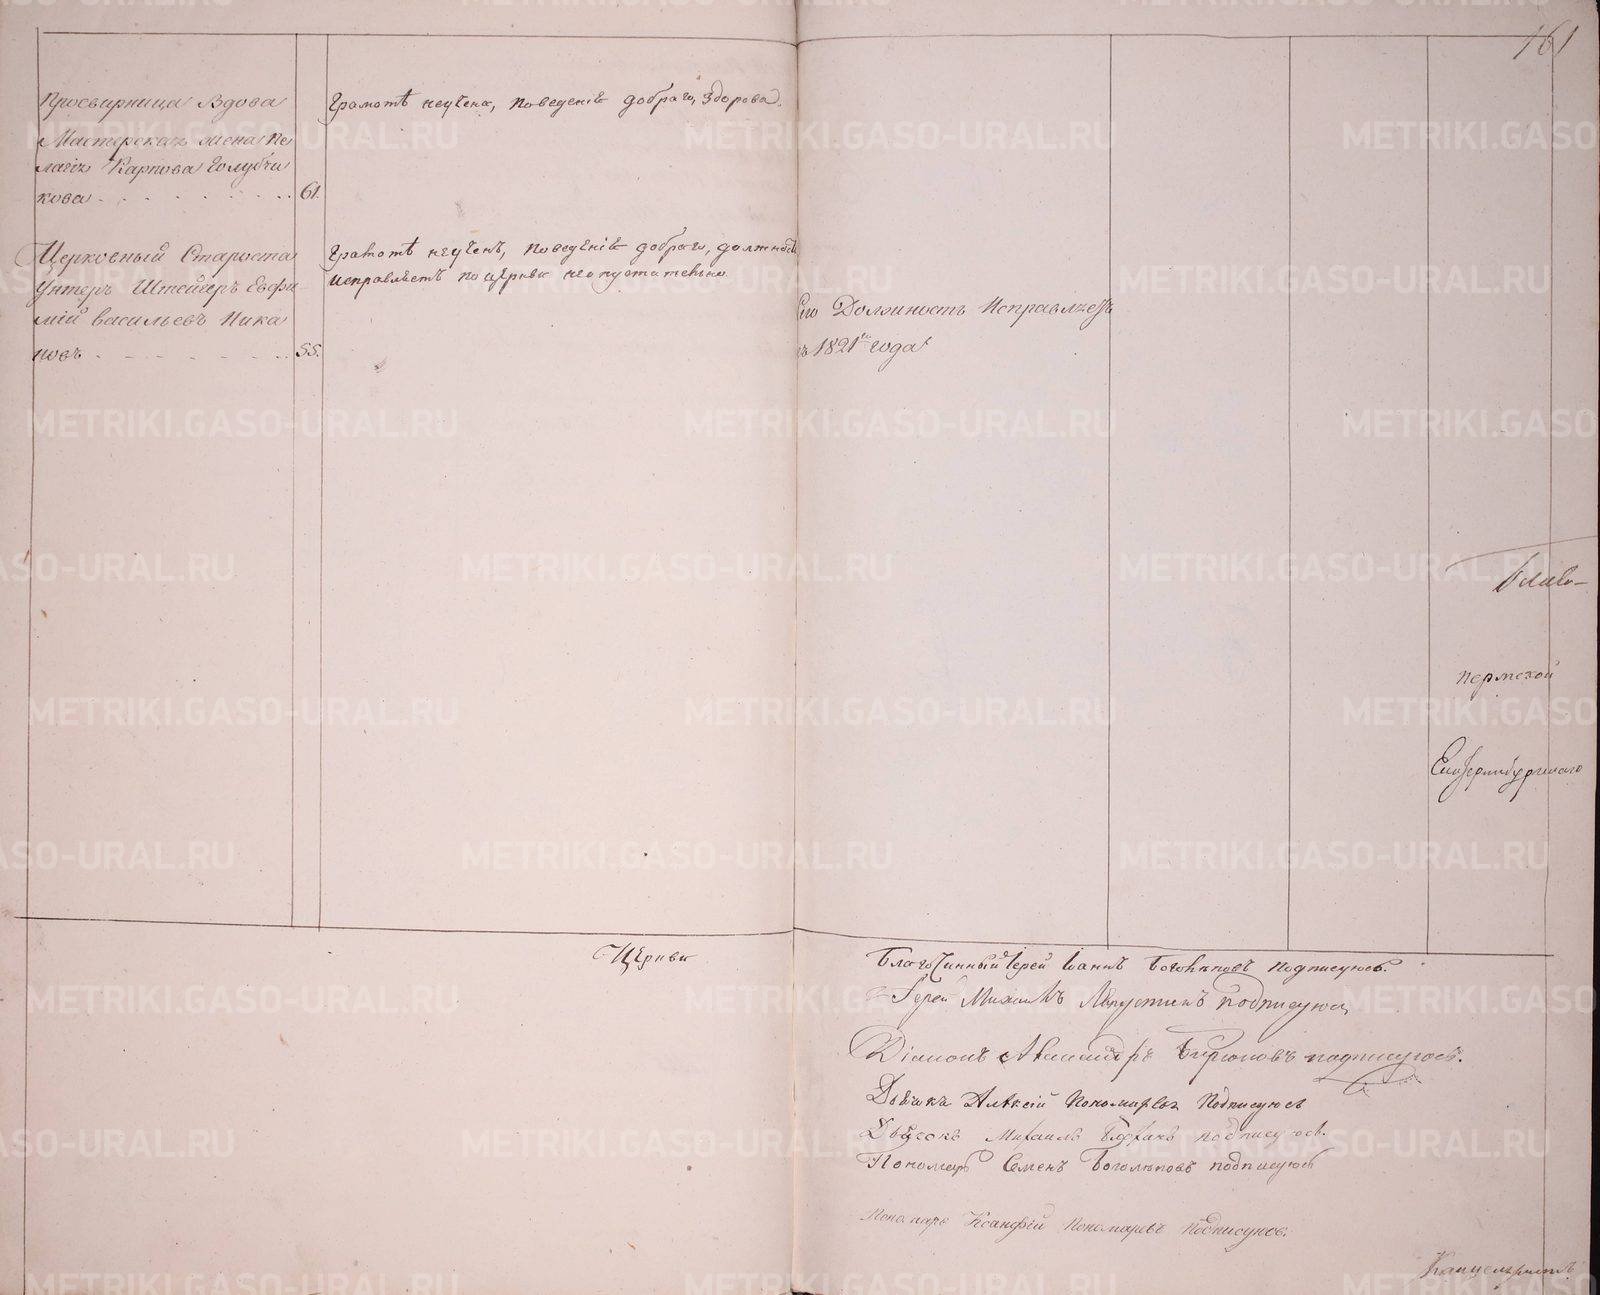 161
Просвирница Вдова
Мастерская жена Пе
лагія Карпова Голубчи
кова - - - - - - - - 61.
Грамотѣ неучена, поведенія добраго, здорова.
Церковный Староста
Унтеръ Штейгеръ Евфи
мій Васильевъ Ника
новъ - - - - - - - 55.
Грамотѣ неученъ, поведенія добраго, должность
исправляетъ по церкви неопустительно
Сію Должность Исправляетъ
съ 1821го года
Благо-
Пермской
Екатеринбургскаго
Церкви
Благочинный Іерей Іоаннъ Боголѣповъ подписуюсь.
Іерей Михаилъ подписуюсь
Діаконъ Александръ Бирюковъ подписуюсь.
Дьячокъ Алексій Пономаревъ Подписуюсь
Дьячокъ Михаилъ подписуюсь.
Пономарь Семенъ Боголѣповъ подписуюсь
Пономарь Ксанфій Пономаревъ Подписуюсь.
Канцеляристъ
METRIKI.GASO-URAL.RU